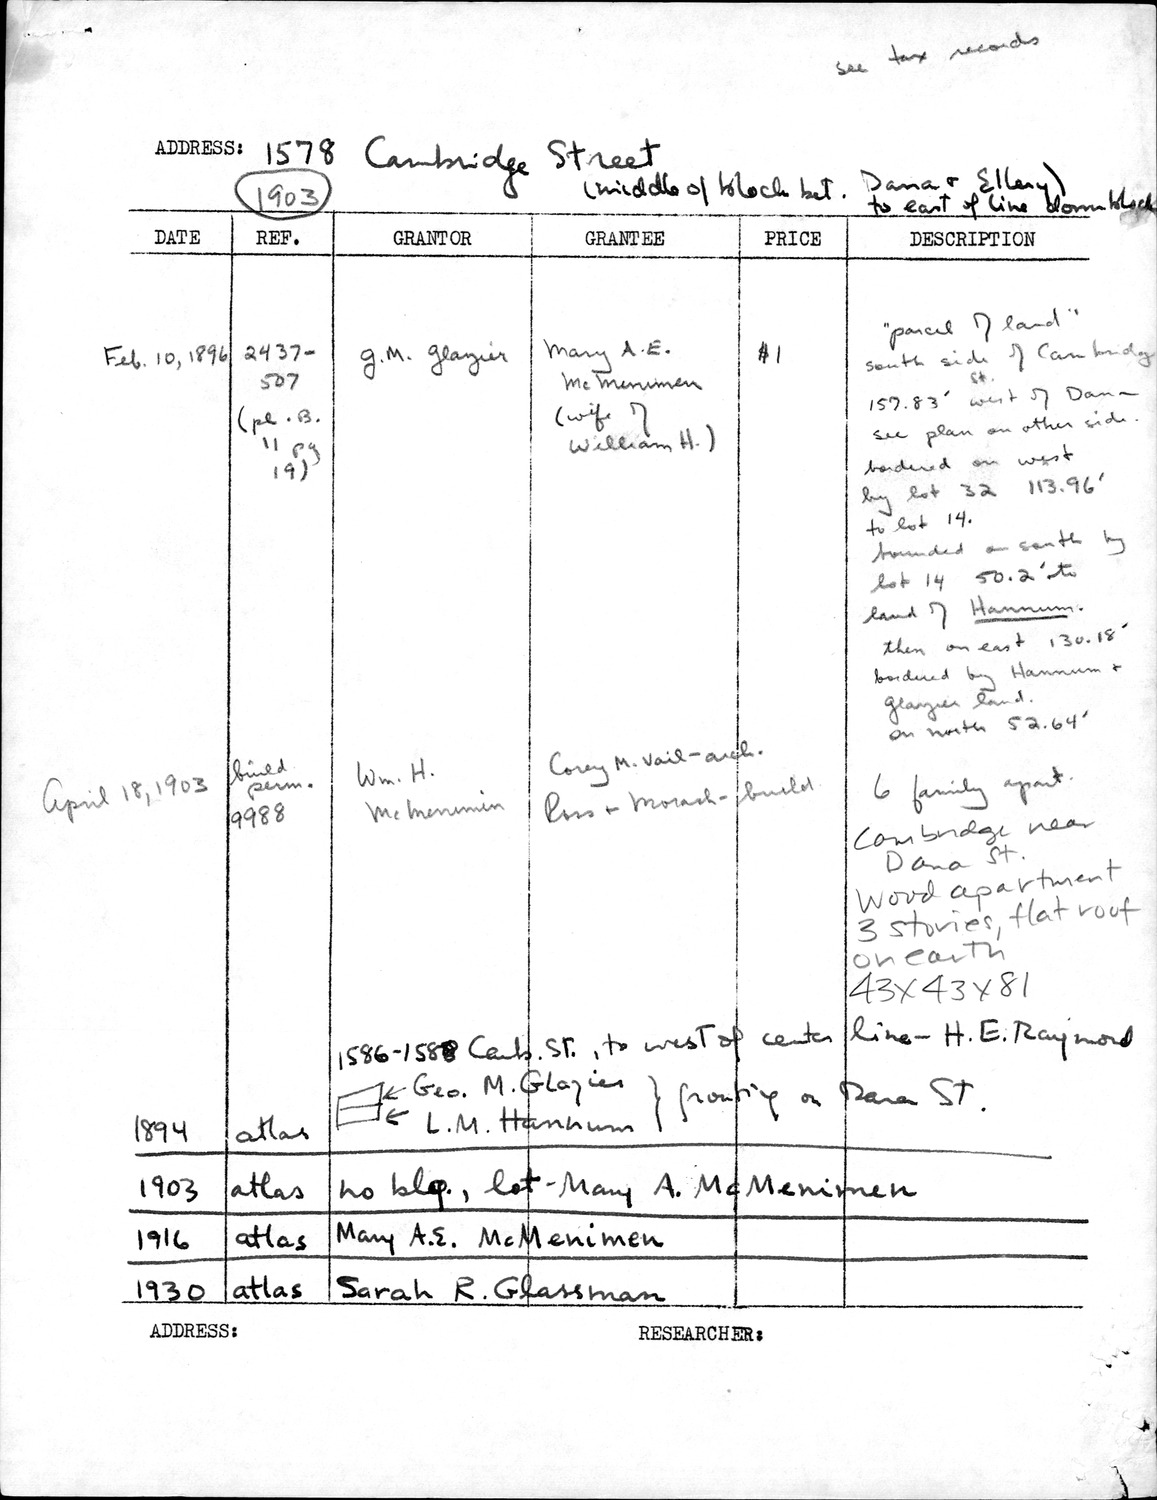 see tax records
ADDRESS: 1578 Cambridge Street
1903
(middle of block bet. Dana & Ellery)
to east of line down block
DATE REF. GRANTOR GRANTEE PRICE DESCRIPTION
Feb. 10, 1896
2437-
507
(pl. B.
11 pg
19)
G.M. Glazier
Mary A.E.
McMenimen
(wife of
William H.)
$1
"parcel of land"
south side of Cambridge
St.
157.83' west of Dana
see plan on other side.
bordered on west
by lot 32 113.96'
to lot 14.
bounded on south by
lot 14 50.2' to
land of Hannum.
then on east 130.18'
bordered by Hannum &
Glazier land.
on north 52.64'
April 18, 1903
build.
perm.
9988
Wm. H.
McMenimin
Corey M. Vail-arch.
Ross & Morash-build.
6 family apart.
Cambridge near
Dana St.
Wood apartment
3 stories, flat roof
on earth
43X43X81
1586-1588 Camb. St., to west of center line- H.E. Raymond
Geo. M. Glazier
L.M. Hannum
} fronting on Dana St.
1894 atlas
1903 atlas no bldg., lot-Mary A. McMenimen
1916 atlas Mary A.E. McMenimen
1930 atlas Sarah R. Glassman
ADDRESS: RESEARCHER: